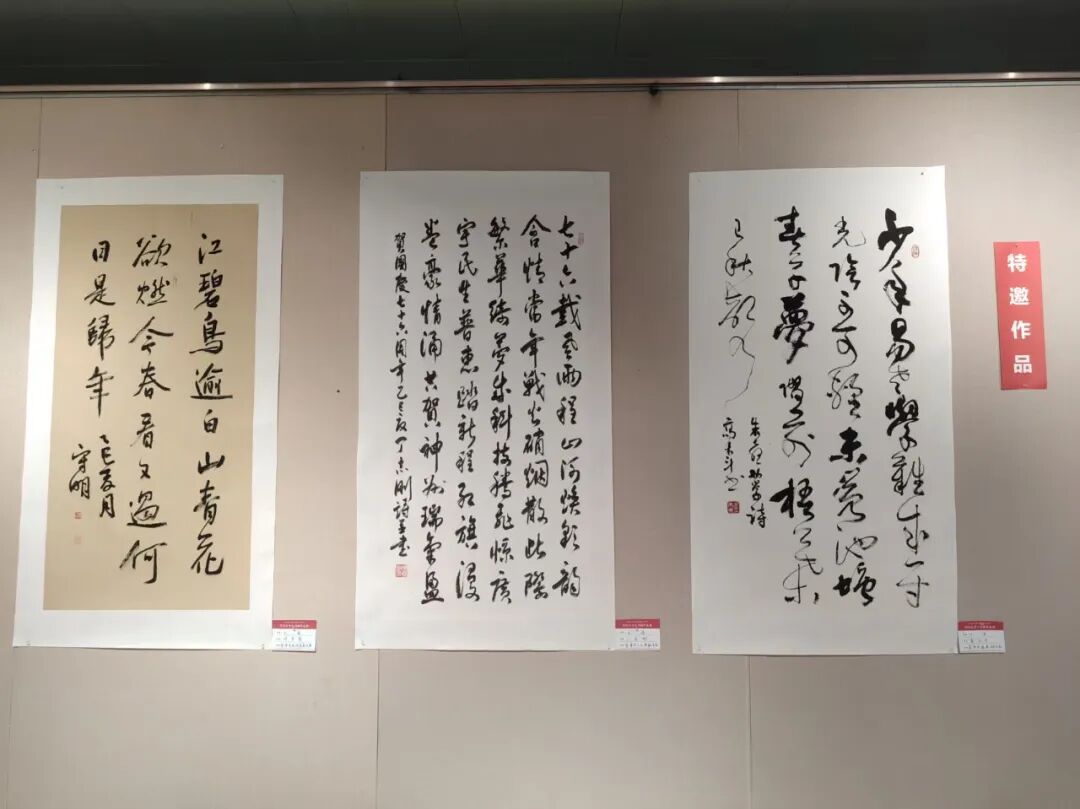 江碧鳥逾白山青花
欲燃今春看又過何
日是歸年
乙巳夏月
守明
七十六載風雨程山河煥彩韵
含情當年戰火硝烟散此際
繁華綺夢成科技騰飛惊廣
宇民生普惠踏新程紅旗漫
卷豪情涌共賀神州瑞氣盈
賀國慶七十六周年乙巳夏丁志刚詩并書
少年易老學難成一寸
光陰不可輕未覺池塘
春草夢階前梧葉
已秋聲
朱熹勸學詩
特邀作品